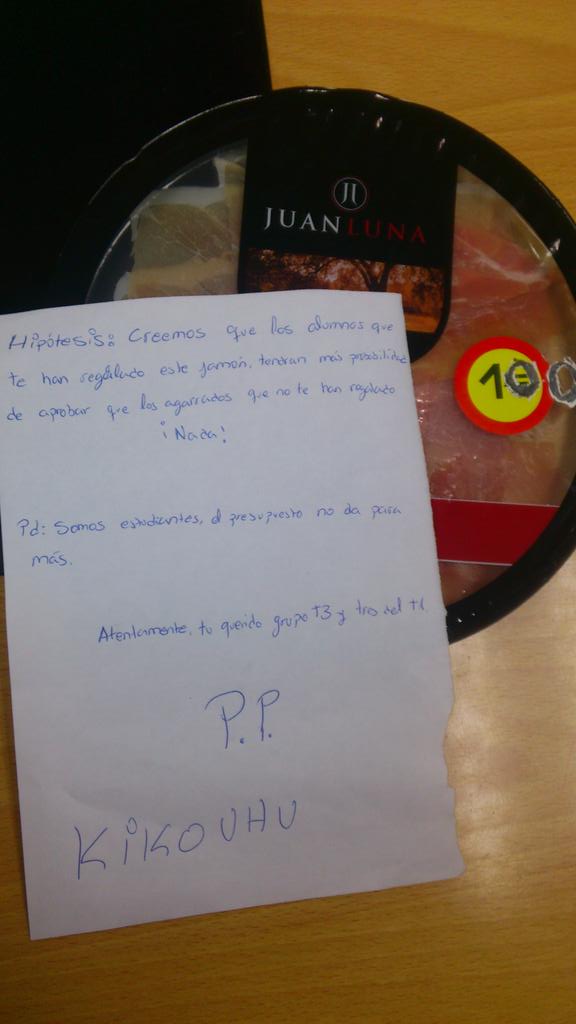 JJ
JUANLUNA
100
Hipótesis: Creemos que los alumnos que
te han regalado este jamón, tendran más probabilidad
de aprobar que los agarrados que no te han regalado
¡Nada!
Pd: Somos estudiantes, el presupuesto no da para
más.
Atentamente, tu querido grupo T3 y tres del T1.
P.P.
KiKO UHU